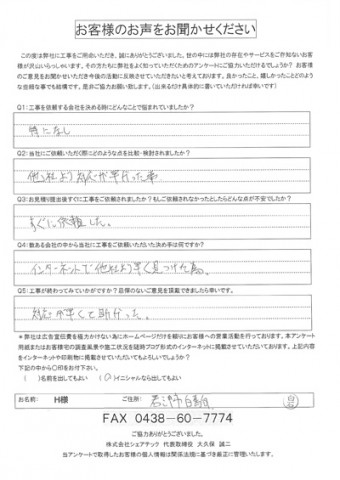 お客様のお声をお聞かせください
この度は弊社に工事をご用命いただき、誠にありがとうございました。世の中には弊社の存在やサービスをご存知ないお客
様が沢山いらっしゃいます。その方たちにも弊社をよく知っていただくためのアンケートにご協力いただけるでしょうか？ お客様
のご意見をお聞かせいただき今後の活動に反映させていただきたいと考えております。良かったこと、嬉しかったことどのよう
な些細な事でも結構です。是非ご協力お願い致します。（出来るだけ具体的に書いていただければ幸いです）
Q1:工事を依頼する会社を決める時にどんなことで悩まれていましたか？
特になし
Q2:当社にご依頼いただく際にどのような点を比較・検討されましたか？
他社より対応が早かった事
Q3:お見積り提出後すぐに工事をご依頼されましたか？もしご依頼されなかったとしたらどんな点が不安でしたか？
すぐに依頼した。
Q4:数ある会社の中から当社に工事をご依頼いただいた決め手は何ですか？
インターネットで他社より早く見つけた為。
Q5:工事が終わってみていかがですか？忌憚のないご意見を頂戴できましたら幸いです。
対応が早くて助かった。
＊弊社は広告宣伝費を極力かけない為にホームページだけを頼りにお客様への営業活動を行っております。本アンケート
用紙またはお客様宅の調査風景や施工状況を随時ブログ形式のインターネットに掲載させていただいております。上記内容
をインターネットや印刷物に掲載させていただいてもよろしいでしょうか？
下記の中から〇印をお付け下さい。
（ ）名前を出してもよい （〇）イニシャルなら出してもよい
お名前： H様 ご住所： 君津市
FAX 0438-60-7774
ご協力ありがとうございました。
株式会社シェアテック 代表取締役 大久保 誠二
当アンケートで取得したお客様の個人情報は関係法規に基づき厳正に管理いたします。